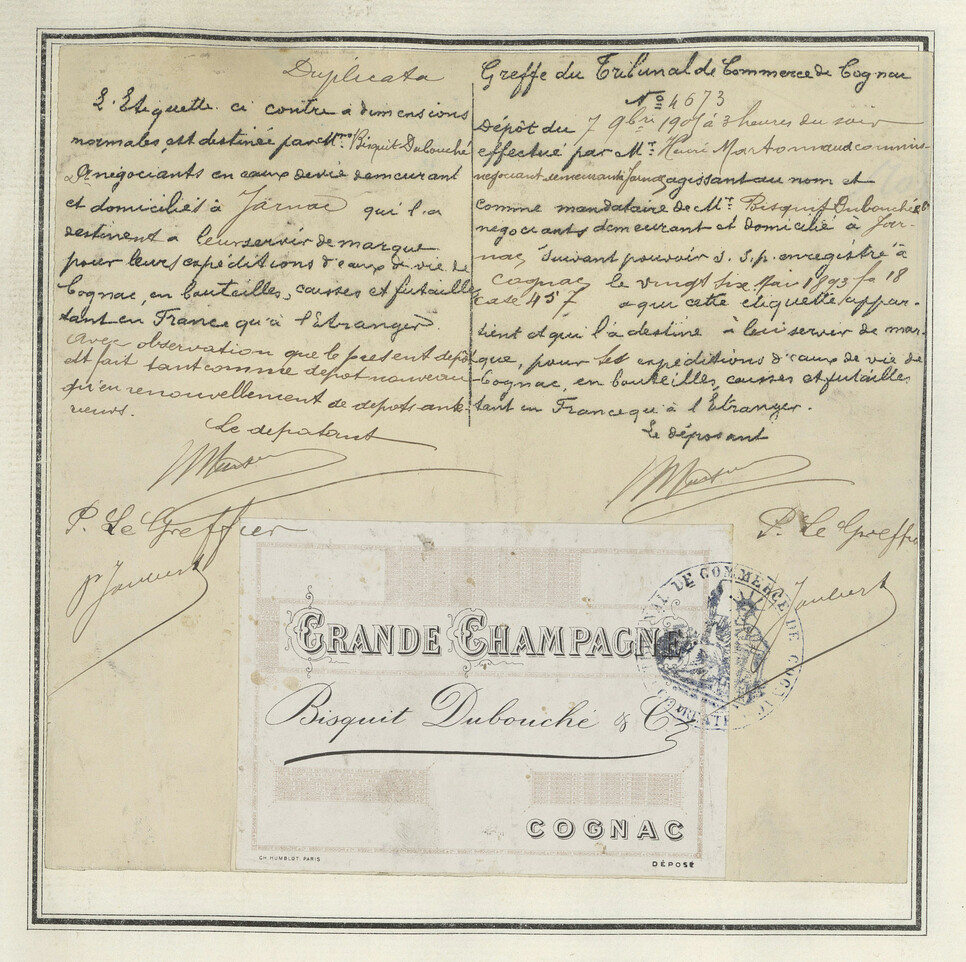 Duplicata
L'Etiquette ci contre à dimensions
normales, est destinée par Mrs Bisquit Dubouché
& Ce negociants en eaux de vie demeurant
et domiciliés à Jarnac qui l'a
destinent a leur servir de marque
pour leurs expéditions d'eaux de vie de
Cognac, en bouteilles, caisses et futailles
tant en France qu'à l'Etranger.
Avec observation que le present depôt
est fait tant comme depot nouveau
qu'en renouvellement de depots ante-
rieurs.
Le deposant
P. Le Greffier
Joubert
Greffe du Tribunal de Commerce de Cognac
No 4673
Dépôt du 7 9bre 190 à 3 heures du soir
effectué par Mr Henri Martonnaud commis-
negociant demeurant à Jarnac agissant au nom et
comme mandataire de Mrs Bisquit Dubouché & Ce
negociants demeurant et domicilié à Jar-
nac, Suivant pouvoir S. S. p. enregistré à
Cognac le vingt six Mai 1893 fo 18
case 457 a qui cette etiquette appar-
tient et qui l'a destiné à leur servir de mar-
que, pour les expéditions d'eaux de vie de
Cognac, en bouteilles, caisses et futailles
tant en France qu'à l'Étranger.
Le déposant
P. Le Greffier
Joubert
GRANDE CHAMPAGNE
Bisquit Dubouché & Ce
COGNAC
CH. HUMBLOT. PARIS
DÉPOSÉ
TRIBUNAL DE COMMERCE DE COGNAC